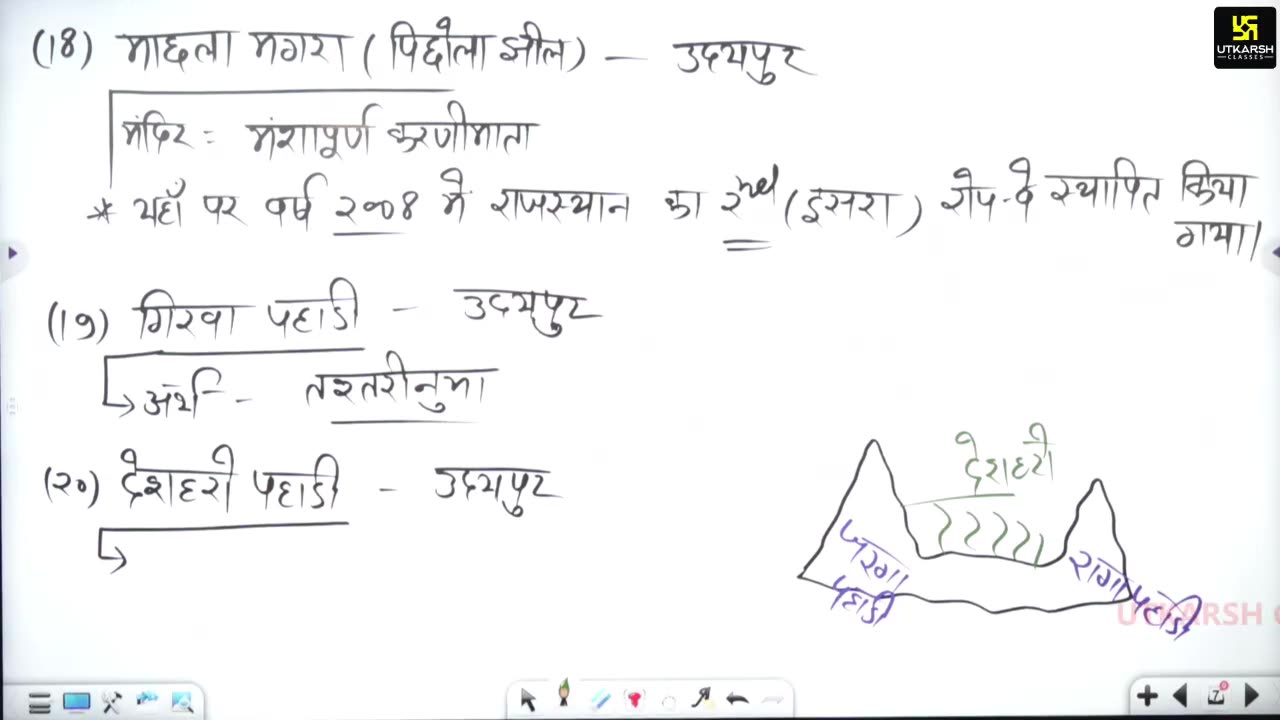 UTKARSH
CLASSES
(18) माछला मगरा (पिछोला झील) — उदयपुर
मंदिर : मंशापूर्ण करणीमाता
* यहाँ पर वर्ष २००४ में राजस्थान का २nd (दूसरा) रोप-वे स्थापित किया
गया।
(19) गिरवा पहाडी - उदयपुर
अर्थ - तश्तरीनुमा
(२०) देशहरो पहाडी - उदयपुर
देशहरो
जरगा
पहाडी
रागा पहाडी
UTKARSH C
7